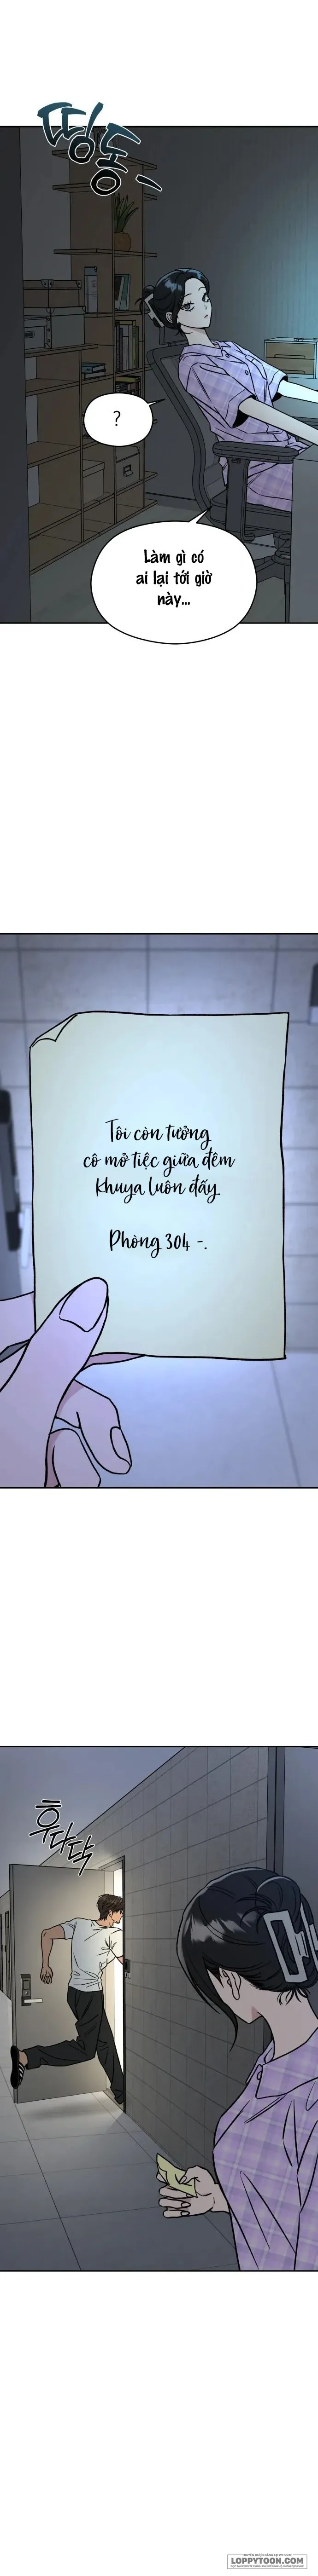 띵동-
?
Làm gì có
ai lại tới giờ
này...
Tôi còn tưởng
cô mở tiệc giữa đêm
khuya luôn đấy.
Phòng 304 -.
후다닥
LOPPYTOON.COM